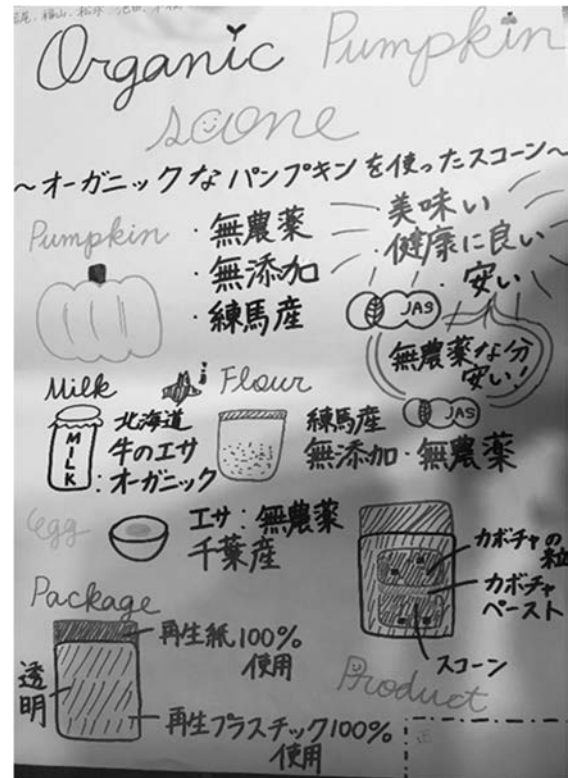 Organic Pumpkin
scone
～オーガニックなパンプキンを使ったスコーン～
Pumpkin
・無農薬
・無添加
・練馬産
・美味い
・健康に良い
・安い
JAS
無農薬な分
安い!
Milk
MILK
北海道
牛のエサ
:オーガニック
Flour
JAS
練馬産
無添加・無農薬
egg
エサ:無農薬
千葉産
カボチャの
粒
カボチャ
ペースト
スコーン
Product
Package
再生紙100%
使用
透明
再生プラスチック100%
使用